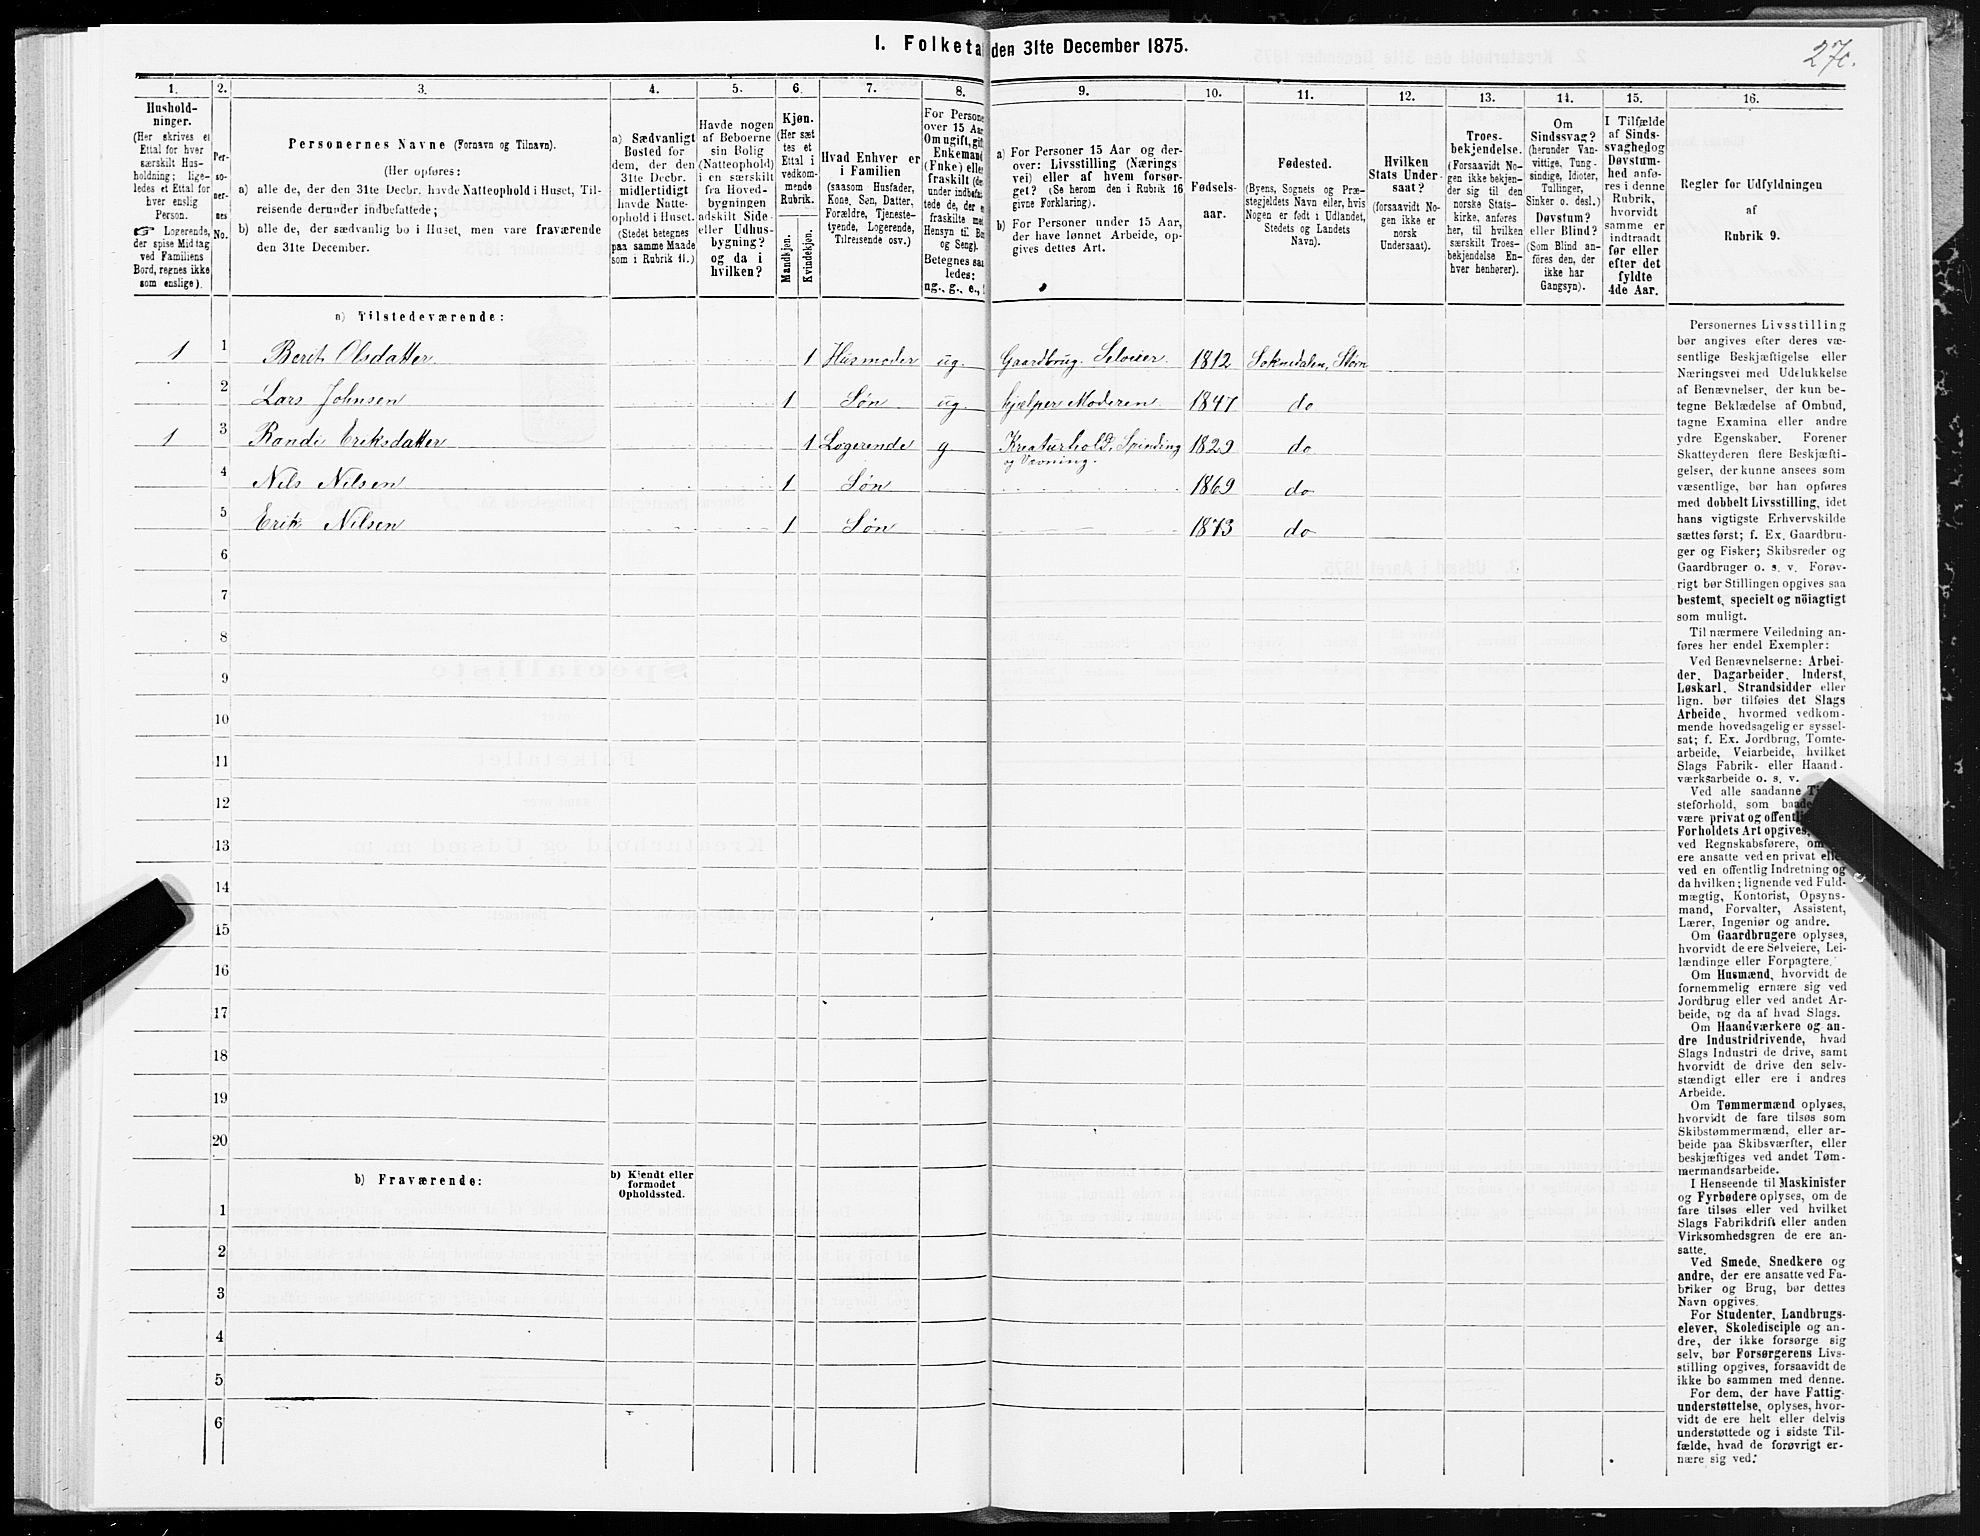 I. Folketa den 31te December 1875.
27c.
1. 2. 3. 4. 5. 6. 7. 8. 9. 10. 11. 12. 13. 14. 15. 16.
Hushold-
ninger.
(Her skrives et
Ettal for hver
særskilt Hus-
holdning; lige-
ledes et Ettal for
hver enslig
Person.
☞ Logerende,
der spise Middag
ved Familiens
Bord, regnes ikke
som enslige).
Per-
so-
ner-
nes
No.
Personernes Navne (Fornavn og Tilnavn).
(Her opføres:
a) alle de, der den 31te Decbr. havde Natteophold i Huset, Til-
reisende derunder indbefattede;
b) alle de, der sædvanlig bo i Huset, men vare fraværende
den 31te December.
a) Sædvanligt
Bosted for
dem, der den
31te Decbr.
midlertidigt
havde Natte-
ophold i Huset.
(Stedet betegnes
paa samme Maade
som i Rubrik 11.)
Havde nogen
af Beboerne
sin Bolig
(Natteophold)
i en særskilt
fra Hoved-
bygningen
adskilt Side-
eller Udhus-
bygning?
og da i
hvilken?
Kjøn.
(Her sæt-
tes et
Ettal i
vedkom-
mende
Rubrik.
Mandkjøn.
Kvindekjøn.
Hvad Enhver er
i Familien
(saasom Husfader,
Kone, Søn, Datter,
Forældre, Tjeneste-
tyende, Logerende,
Tilreisende osv.)
For Persone
over 15 Aar
Om ugift, gift
Enkemand
(Enke) elle
fraskilt (de
under indbefat-
tede de, der e
fraskilte me
Hensyn til Bo
og Seng).
Betegnes saa
ledes:
ug., g., e.,
a) For Personer 15 Aar og der-
over: Livsstilling (Nærings-
vei) eller af hvem forsør-
get? (Se herom den i Rubrik 16
givne Forklaring).
b) For Personer under 15 Aar,
der have lønnet Arbeide, op-
gives dettes Art.
Fødsels-
aar.
Fødested.
(Byens, Sognets og Præ-
stegjeldets Navn eller, hvis
Nogen er født i Udlandet,
Stedets og Landets
Navn).
Hvilken
Stats Under-
saat?
(forsaavidt No-
gen ikke er
norsk
Undersaat).
Troes-
bekjendelse.
(Forsaavidt No-
gen ikke bekjen-
der sig til den
norske Stats-
kirke, anføres
her, til hvilken
særskilt Troes-
bekjendelse En-
hver henhører).
Om
Sindssvag?
(herunder Van-
vittige, Tung-
sindige, Idioter,
Tullinger,
Sinker o. desl.)
Døvstum?
eller Blind?
(Som Blind an-
føres den, der
ikke har
Gangsyn).
I Tilfælde
af Sinds-
svaghed og
Døvstum-
hed anfø-
res i denne
Rubrik,
hvorvidt
samme er
indtraadt
før eller
efter det
fyldte
4de Aar.
Regler for Udfyldningen
af
Rubrik 9.
a) Tilstedeværende:
1 1 Berit Olsdatter 1 Husmoder ug. Gaardbrug. Selveier. 1812 Soknedalen, Støren
2 Lars Johnsen 1 Søn ug hjælper Moderen. 1847 do
1 3 Randi Eriksdatter 1 Logerende g Kreaturhold, Spinding
og Vævning. 1829 do
4 Nils Nilsen 1 Søn 1869 do
5 Erik Nilsen 1 Søn 1873 do
6
7
8
9
10
11
12
13
14
15
16
17
18
19
20
b) Fraværende:
b) Kjendt eller
formodet
Opholdssted.
1
2
3
4
5
6
Personernes Livsstilling
bør angives efter deres væ-
sentlige Beskjæftigelse eller
Næringsvei med Udelukkelse
af Benævnelser, der kun be-
tegne Beklædelse af Ombud,
tagne Examina eller andre
ydre Egenskaber. Forener
Skatteyderen flere Beskjæfti-
gelser, der kunne ansees som
væsentlige, bør han opføres
med dobbelt Livsstilling, idet
hans vigtigste Erhvervskilde
sættes først; f. Ex. Gaardbru-
ger og Fisker; Skibsreder og
Gaardbruger o. s. v. Forøv-
rigt bør Stillingen opgives saa
bestemt, specielt og nöiagtigt
som muligt.
Til nærmere Veiledning an-
føres her endel Exempler:
Ved Benævnelserne: Arbei-
der, Dagarbeider, Inderst,
Løskarl, Strandsidder eller
lign. bør tilføies det Slags
Arbeide, hvormed vedkom-
mende hovedsagelig er syssel-
sat; f. Ex. Jordbrug, Tomte-
arbeide, Veiarbeide, hvilket
Slags Fabrik- eller Haand-
værksarbeide o. s. v.
Ved alle saadanne
steforhold, som baade
være privat og offentli
Forholdets Art opgives,
ved Regnskabsførere, om
ere ansatte ved en privat elle
ved en offentlig Indretning og
da hvilken; lignende ved Fuld-
mægtig, Kontorist, Opsyns-
mand, Forvalter, Assistent,
Lærer, Ingeniør og andre.
Om Gaardbrugere oplyses,
hvorvidt de ere Selveiere, Lei-
lændinge eller Forpagtere.
Om Husmænd, hvorvidt de
fornemmelig ernære sig ved
Jordbrug eller ved andet Ar-
beide, og da af hvad Slags.
Om Haandværkere og an-
dre Industridrivende, hvad
Slags Industri de drive, samt
hvorvidt de drive den selv-
stændigt eller ere i andres
Arbeide.
Om Tømmermænd oplyses,
hvorvidt de fare tilsøs som
Skibstømmermænd, eller ar-
beide paa Skibsværfter, eller
beskjæftiges ved andet Tøm-
mermandsarbeide.
I Henseende til Maskinister
og Fyrbødere oplyses, om de
fare tilsøs eller ved hvilket
Slags Fabrikdrift eller anden
Virksomhedsgren de ere an-
satte.
Ved Smede, Snedkere og
andre, der ere ansatte ved Fa-
briker og Brug, bør dettes
Navn opgives.
For Studenter, Landbrugs-
elever, Skoledisciple og an-
dre, der ikke forsørge sig
selv, bør Forsørgerens Livs-
stilling opgives, forsaavidt de
ikke bo sammen med denne.
For dem, der have Fattig-
understøttelse, oplyses, hvor-
vidt de ere helt eller delvis
understøttede og i sidste Til-
fælde, hvad de forøvrigt er-
nære sig ved.